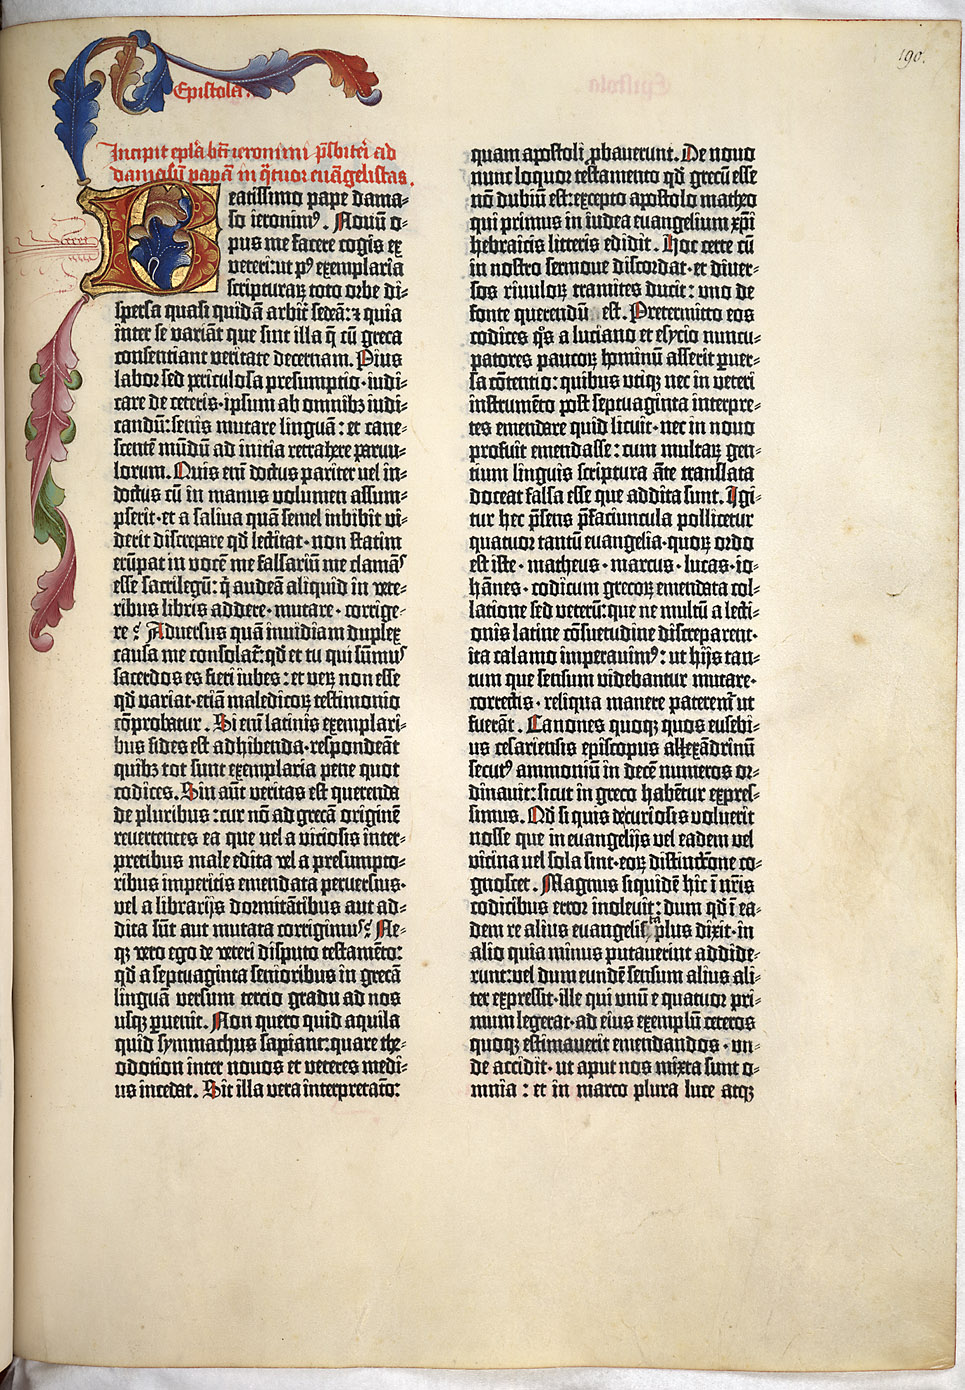 Epistola.
190.
Incipit epl̄a bt̄i ieronimi p̄sbiteri ad
damasū papaā in q̄tuor euāgelistas.
Beatissimo pape dama⸗
so ieronimꝰ. Nouū o⸗
pus me facere cogis ex
veteri:ut pꝰ exemplaria
scripturaꝝ toto orbe di⸗
spersa quasi quidā arbiť sedeā: ⁊ quia
inter se variāt que sint illa q̄ cū greca
consentiant veritate decernam. Pius
labor sed periculosa presumptio·iudi⸗
care de ceteris·ipsum ab omnibꝫ iudi⸗
candū:senis mutare linguā: et cane⸗
scentē mūdū ad initia retrahere paruu⸗
lorum. Quis eni doctus pariter vel in⸗
doctus cū in manus volumen assum⸗
pserit·et a saliua quā semel inbibit vi⸗
derit discrepare qd̄ lectitat·non statim
erūpat in vocē me falsariū me clamās
esse sacrilegū: q̄ audeā aliquid in vete⸗
ribus libris addere·mutare·corrige⸗
re? Aduersus quā inuidiam duplex
causa me consolat̄:qd̄ et tu qui sūmus
sacerdos es fieri iubes: et veꝝ non esse
qd̄ variat·etiā maledicoꝝ testimonio
cōprobatur. Si enī latinis exemplari⸗
bus fides est adhibenda·respondeāt
quibꝫ tot sunt exemplaria pene quot
codices. Sin aūt veritas est querenda
de pluribus: cur nō ad grecā originē
reuertentes ea que vel a viciosis inter⸗
pretibus male edita vel a presumpto⸗
ribus imperitis emendata peruersius·
vel a librarijs dormitātibus aut ad⸗
dita sūt aut mutata corrigimus? Ne⸗
qꝫ vero ego de veteri disputo testamēto:
qd̄ a septuaginta senioribus in grecā
linguā versum tercio gradu ad nos
usqꝫ ꝑuenit. Non quero quid aquila
quid symmachus sapiant:quare the⸗
odotion inter nouos et veteres medi⸗
us incedat. Sit illa vera interpretatō:
quam apostoli ꝓbauerunt. De nouo
nunc loquor testamento qd̄ grecū esse
nō dubiū est:excepto apostolo matheo
qui primus in iudea euangelium xp̄i
hebraicis litteris edidit. Hoc certe cū
in nostro sermone discordat·et diuer⸗
sos riuuloꝝ tramites ducit: uno de
fonte querendū est. Pretermitto eos
codices q̄s a luciano et esycio nuncu⸗
patores paucoꝝ hominū asserit ꝑuer⸗
sa cōtentio: quibus vtiqꝫ nec in veteri
instrumēto post septuaginta interpre⸗
tes emendare quid licuit·nec in nouo
profuit emendasse: cum multaꝝ gen⸗
tium linguis scriptura āte translata
doceat falsa esse que addita sunt. Igi⸗
tur hec p̄sens p̄faciuncula pollicetur
quatuor tantū euangelia·quoꝝ ordo
est iste·matheus·marcus·lucas·io⸗
hānes·codicum grecoꝝ emendata col⸗
latione sed veterū:que ne multū a lecti⸗
onis latine cōsuetudine discreparent·
ita calamo imperauimꝰ: ut hijs tan⸗
tum que sensum videbantur mutare·
correctis·reliqua manere pateremr̄ ut
fuerāt. Canones quoqꝫ quos eusebi⸗
us cesariensis episcopus allexādrinū
secutꝰ ammoniū in decē numeros or⸗
dinauit:sicut in greco habētur expres⸗
simus. Qd̄ si quis de curiosis voluerit
nosse que in euangelijs vel eadem vel
vicina vel sola sint·eoꝝ distinctōne co⸗
gnoscet. Magnus siquidē hic ī nr̄is
codicibus error inoleuit: dum qd̄ ī ea⸗
dem re alius euangelista plus dixit·in
alio quia minus putauerint addide⸗
runt:vel dum eundē sensum alius ali⸗
ter expressit·ille qui vnū e quatuor pri⸗
mum legerat·ad eius exemplū ceteros
quoqꝫ estimauerit emendandos·vn⸗
de accidit·ut aput nos mixta sunt o⸗
mnia: et in marco plura luce atqꝫ